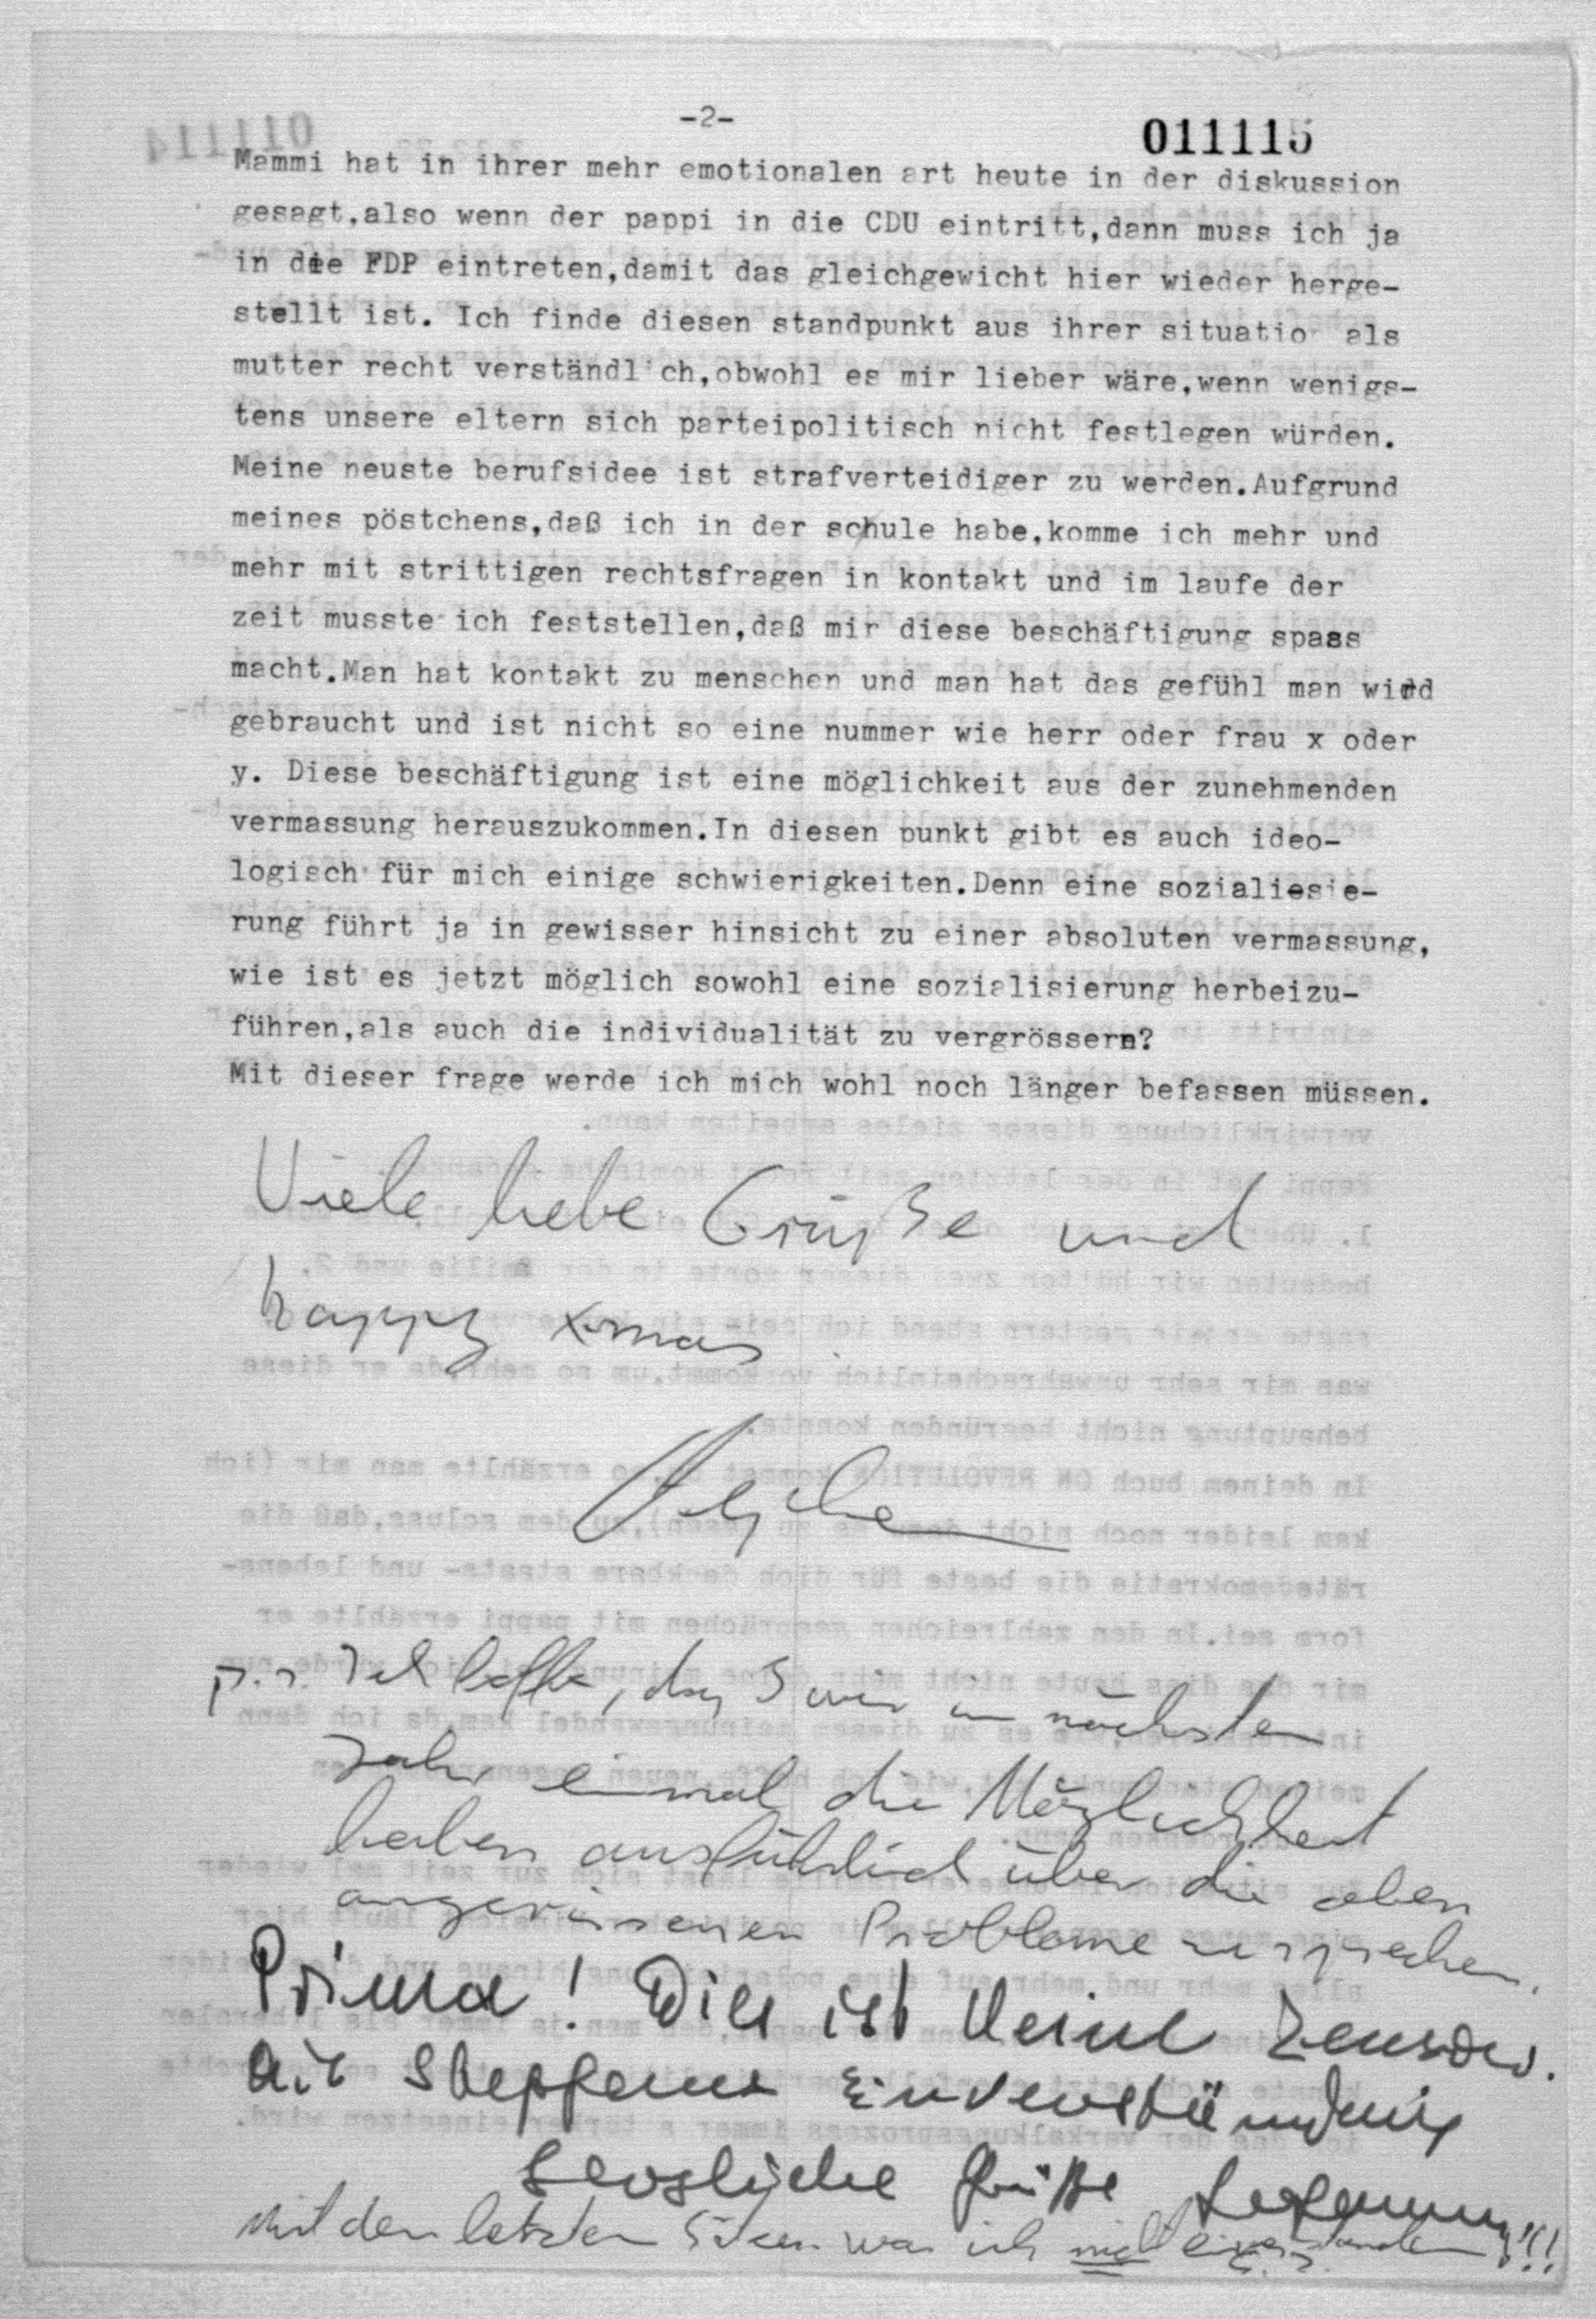 -2-
011115
Mammi hat in ihrer mehr emotionalen art heute in der diskussion
gesagt,also wenn der pappi in die CDU eintritt,dann muss ich ja
in die FDP eintreten,damit das gleichgewicht hier wieder herge-
stellt ist. Ich finde diesen standpunkt aus ihrer situatio als
mutter recht verständl ch,obwohl es mir lieber wäre,wenn wenigs-
tens unsere eltern sich parteipolitisch nicht festlegen würden.
Meine neuste berufsidee ist strafverteidiger zu werden.Aufgrund
meines pöstchens,daß ich in der schule habe,komme ich mehr und
mehr mit strittigen rechtsfragen in kontakt und im laufe der
zeit musste ich feststellen,daß mir diese beschäftigung spass
macht.Man hat kontakt zu menschen und man hat das gefühl man wird
gebraucht und ist nicht so eine nummer wie herr oder frau x oder
y. Diese beschäftigung ist eine möglichkeit aus der zunehmenden
vermassung herauszukommen.In diesen punkt gibt es auch ideo-
logisch für mich einige schwierigkeiten.Denn eine sozialiesie-
rung führt ja in gewisser hinsicht zu einer absoluten vermassung,
wie ist es jetzt möglich sowohl eine sozialisierung herbeizu-
führen,als auch die individualität zu vergrössern?
Mit dieser frage werde ich mich wohl noch länger befassen müssen.
Viele liebe Grüße und
happy x-mas
p.s. Ich hoffe, daß wir im nächsten
Jahr einmal die Möglichkeit
haben ausführlich über die oben
angerissenen Probleme zu sprechen.
Prima! Dies ist keine Zensur.
Mit Steffens Einverständnis
herzliche Grüße
Mit den letzten Sätzen war ich nicht einverstanden!!!